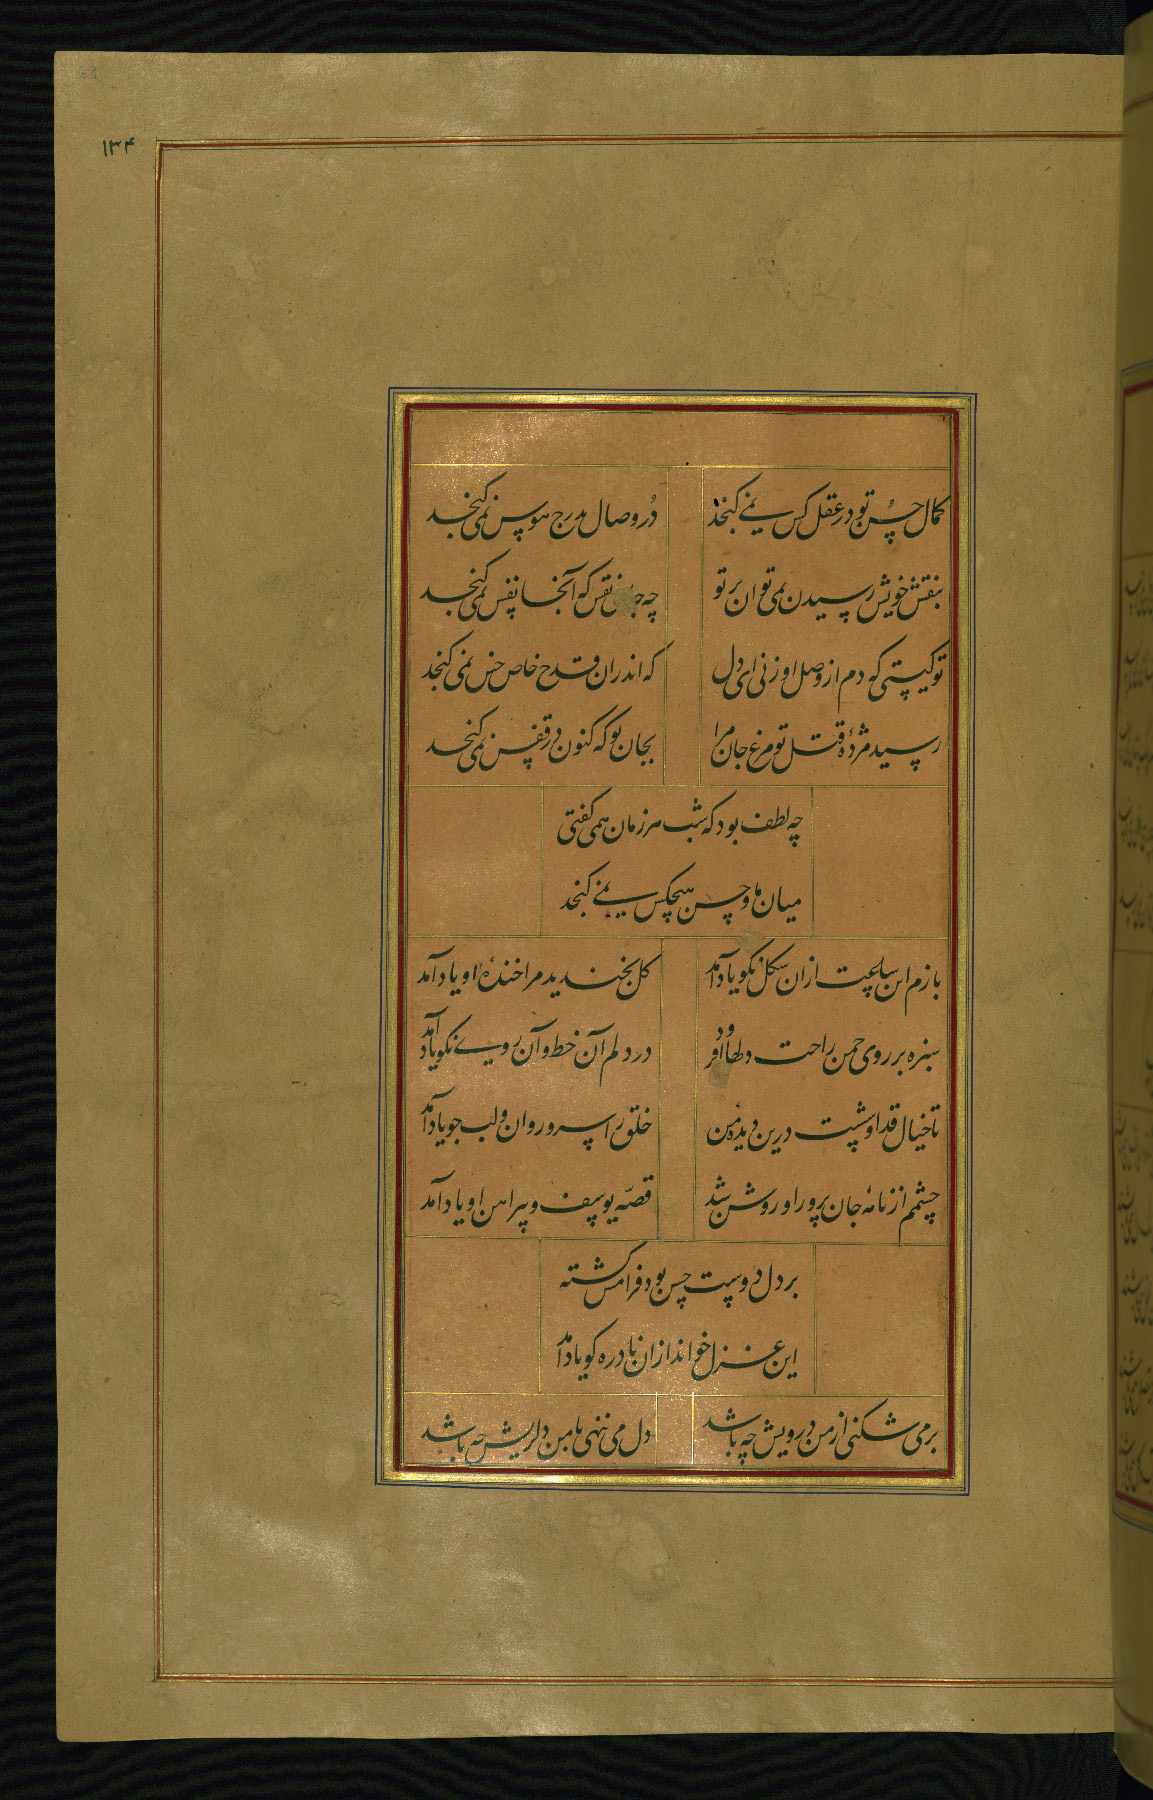 ۱۳۴
کمال حسن تو در عقل کس نمی گنجد
در وصال بدرج هوس نمی گنجد
بنقش خویش رسیدن نمی توان بر تو
چه جای نقس که آنجا نفس نمی گنجد
تو کیستی که دم از وصل او زنی ای دل
که اندران قدح خاص خس نمی گنجد
رسید مژدهٔ قتل تو مرغ جان مرا
بجان تو که کنون در قفس نمی گنجد
چه لطف بود که شب هر زمان همی گفتی
میان ما و حسن هیچکس نمی گنجد
بازم این ساعت ازان شکل نکو یاد آمد
گل بخندید مرا خندهٔ او یاد آمد
سبزه بر روی چمن راحت دلها افزود
در دلم آن خط و آن روی نکو یاد آمد
تا خیال قد او شست درین دیدهٔ من
خلق را سرو روان و لب جو یاد آمد
چشمم از نامهٔ جان پرور او روشن شد
قصّه یوسف و پیراهن او یاد آمد
بر دل دوست حسن بود فرامش گشته
این غزل خواند ازان نادره گو یاد آمد
بر می شکنی از من درویش چه باشد
دل می ننهی با من دلریش چه باشد